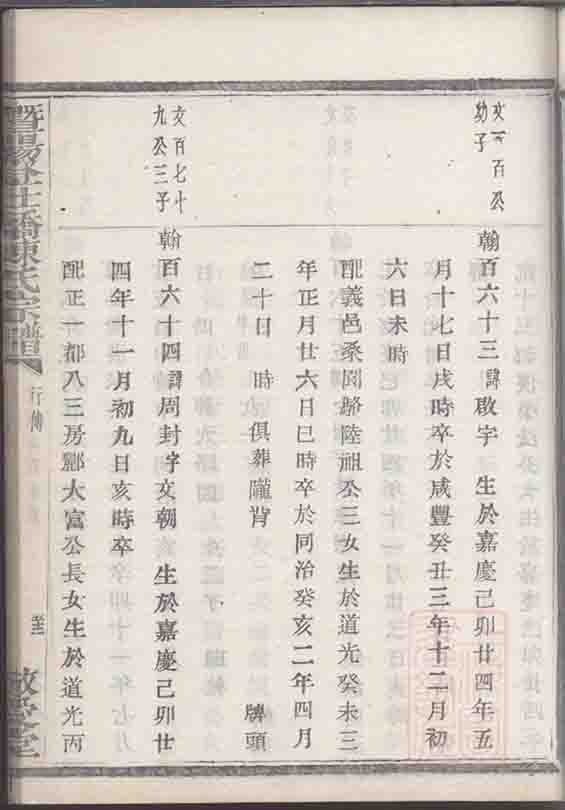 文百公
幼子
翰百六十三諱啟字 生於嘉慶己卯廿四年五
月十七日戌時卒於咸豐癸丑三年十二月初
六日未時
配義邑桑園 陸祖公三女生於道光癸未三
年正月廿六日巳時卒於同治癸亥二年四月
二十日 時 俱葬隴背 牌頭
文百七十
九公三子
翰百六十四諱周封字文朝 生於嘉慶己卯廿
四年十一月初九日亥時卒
配正一都八三房酈大富公長女生於道光丙
暨陽 橋陳氏宗譜
行傳
敬愛堂